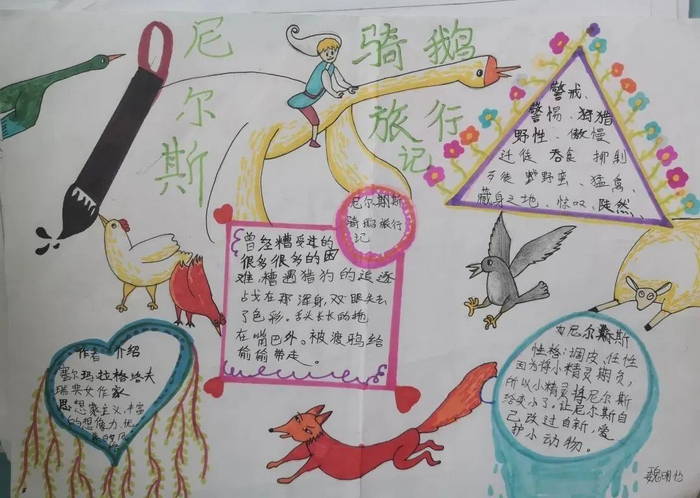 尼尔斯
骑鹅
旅行
记
警戒、
警惕、狩猎
野性、傲慢
迁徙 吞食 掷射
野蛮、猛禽、
藏身之地、惊叹、陡然
尼尔斯
骑鹅旅行
记
曾经糟受过的
很多很多的困
难糟遇猎狗的追逐
浑身,双眼失去
了色彩。舌头长长的拖
在嘴巴外。被渡鸦给
偷偷带走。
作者介绍
塞尔玛拉格洛夫
瑞典女作家
思想家主义、丰富
的想像力、优
尼尔斯
性格:调皮、任性
因为将小精灵期负,
所以小精灵将尼尔斯
给变小了。让尼尔斯自
己改过自新,爱
护小动物。